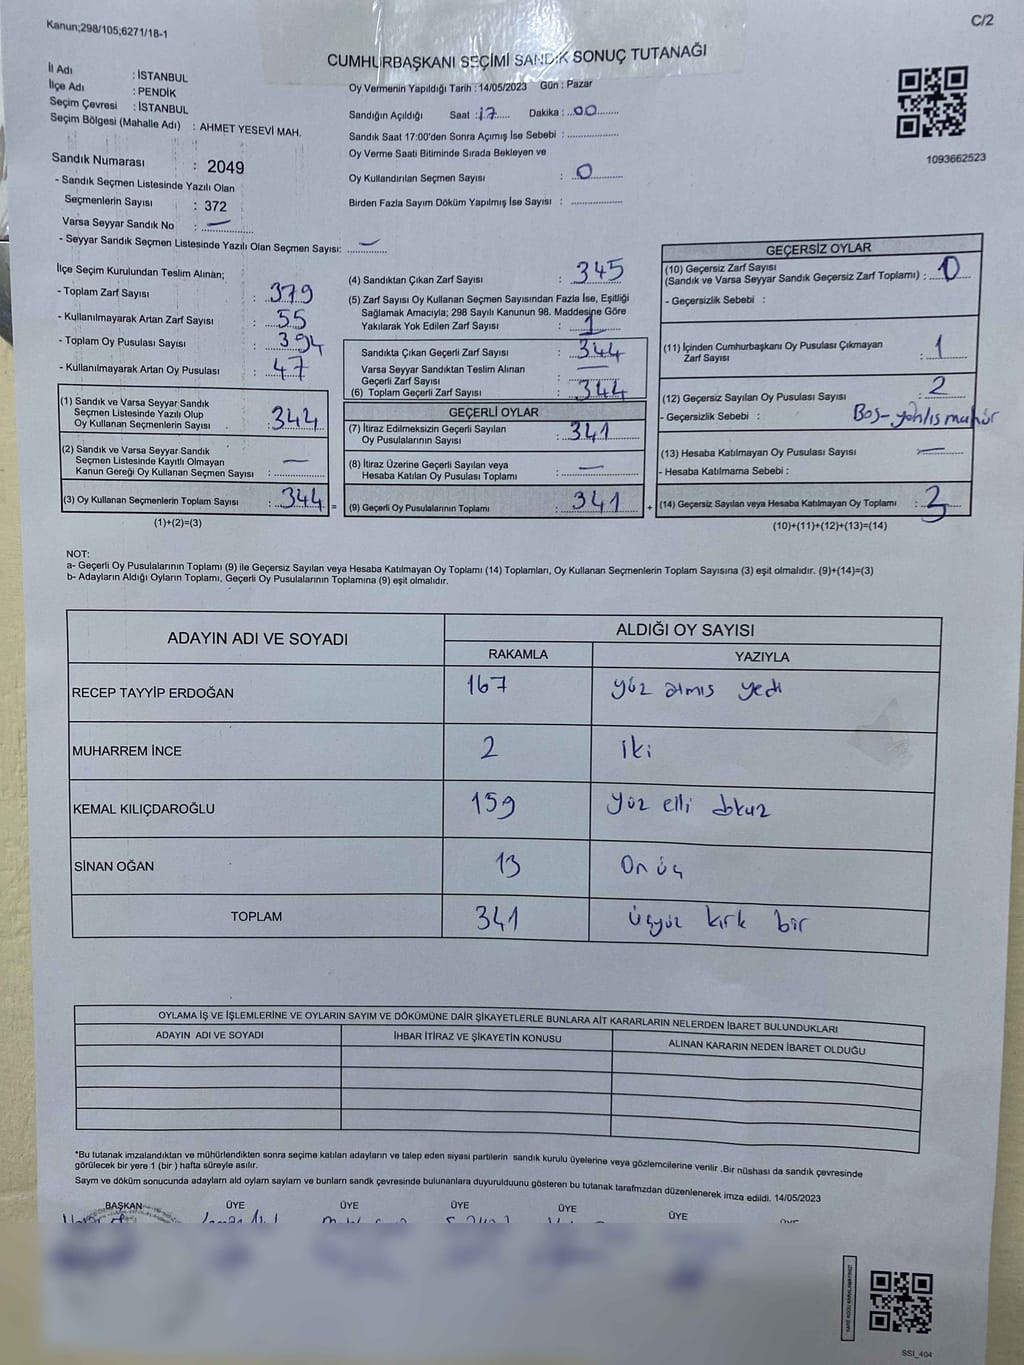 Kanun;298/105;6271/18-1
C/2
CUMHURBAŞKANI SEÇİMİ SANDIK SONUÇ TUTANAĞI
İl Adı : İSTANBUL
İlçe Adı : PENDİK
Seçim Çevresi : İSTANBUL
Seçim Bölgesi (Mahalle Adı) : AHMET YESEVİ MAH.
Oy Vermenin Yapıldığı Tarih : 14/05/2023 Gün : Pazar
Sandığın Açıldığı Saat : 17 Dakika : 00
Sandık Saat 17:00'den Sonra Açılmış İse Sebebi :
Oy Verme Saati Bitiminde Sırada Bekleyen ve
Oy Kullandırılan Seçmen Sayısı : 0
Birden Fazla Sayım Döküm Yapılmış İse Sayısı :
1093662523
Sandık Numarası : 2049
- Sandık Seçmen Listesinde Yazılı Olan
Seçmenlerin Sayısı : 372
Varsa Seyyar Sandık No : —
- Seyyar Sandık Seçmen Listesinde Yazılı Olan Seçmen Sayısı: —
İlçe Seçim Kurulundan Teslim Alınan;
- Toplam Zarf Sayısı : 379
- Kullanılmayarak Artan Zarf Sayısı : 55
- Toplam Oy Pusulası Sayısı : 394
- Kullanılmayarak Artan Oy Pusulası : 47
(1) Sandık ve Varsa Seyyar Sandık
Seçmen Listesinde Yazılı Olup
Oy Kullanan Seçmenlerin Sayısı : 344
(2) Sandık ve Varsa Seyyar Sandık
Seçmen Listesinde Kayıtlı Olmayan
Kanun Gereği Oy Kullanan Seçmen Sayısı : —
(3) Oy Kullanan Seçmenlerin Toplam Sayısı : 344
(1)+(2)=(3)
=
(4) Sandıktan Çıkan Zarf Sayısı : 345
(5) Zarf Sayısı Oy Kullanan Seçmen Sayısından Fazla İse, Eşitliği
Sağlamak Amacıyla; 298 Sayılı Kanunun 98. Maddesine Göre
Yakılarak Yok Edilen Zarf Sayısı : 1
Sandıkta Çıkan Geçerli Zarf Sayısı : 344
Varsa Seyyar Sandıktan Teslim Alınan
Geçerli Zarf Sayısı : —
(6) Toplam Geçerli Zarf Sayısı : 344
GEÇERLİ OYLAR
(7) İtiraz Edilmeksizin Geçerli Sayılan
Oy Pusulalarının Sayısı : 341
(8) İtiraz Üzerine Geçerli Sayılan veya
Hesaba Katılan Oy Pusulası Toplamı : —
(9) Geçerli Oy Pusulalarının Toplamı : 341
+
GEÇERSİZ OYLAR
(10) Geçersiz Zarf Sayısı
(Sandık ve Varsa Seyyar Sandık Geçersiz Zarf Toplamı) : 0
- Geçersizlik Sebebi :
(11) İçinden Cumhurbaşkanı Oy Pusulası Çıkmayan
Zarf Sayısı : 1
(12) Geçersiz Sayılan Oy Pusulası Sayısı : 2
- Geçersizlik Sebebi : Boş - yanlış mühür
(13) Hesaba Katılmayan Oy Pusulası Sayısı : —
- Hesaba Katılmama Sebebi :
(14) Geçersiz Sayılan veya Hesaba Katılmayan Oy Toplamı : 3
(10)+(11)+(12)+(13)=(14)
NOT:
a- Geçerli Oy Pusulalarının Toplamı (9) ile Geçersiz Sayılan veya Hesaba Katılmayan Oy Toplamı (14) Toplamları, Oy Kullanan Seçmenlerin Toplam Sayısına (3) eşit olmalıdır. (9)+(14)=(3)
b- Adayların Aldığı Oyların Toplamı, Geçerli Oy Pusulalarının Toplamına (9) eşit olmalıdır.
ADAYIN ADI VE SOYADI
ALDIĞI OY SAYISI
RAKAMLA YAZIYLA
RECEP TAYYİP ERDOĞAN 167 yüz atmış yedi
MUHARREM İNCE 2 iki
KEMAL KILIÇDAROĞLU 159 yüz elli dokuz
SİNAN OĞAN 13 On üç
TOPLAM 341 üçyüz kırk bir
OYLAMA İŞ VE İŞLEMLERİNE VE OYLARIN SAYIM VE DÖKÜMÜNE DAİR ŞİKAYETLERLE BUNLARA AİT KARARLARIN NELERDEN İBARET BULUNDUKLARI
ADAYIN ADI VE SOYADI İHBAR İTİRAZ VE ŞİKAYETİN KONUSU ALINAN KARARIN NEDEN İBARET OLDUĞU
*Bu tutanak imzalandıktan ve mühürlendikten sonra seçime katılan adayların ve talep eden siyasi partilerin sandık kurulu üyelerine veya gözlemcilerine verilir .Bir nüshası da sandık çevresinde
görülecek bir yere 1 (bir ) hafta süreyle asılır.
Sayım ve döküm sonucunda adayların ald oyların sayları ve bunların sandk çevresinde bulunanlara duyurulduunu gösteren bu tutanak tarafmzdan düzenlenerek imza edildi. 14/05/2023
BAŞKAN ÜYE ÜYE ÜYE ÜYE ÜYE
SSI_404